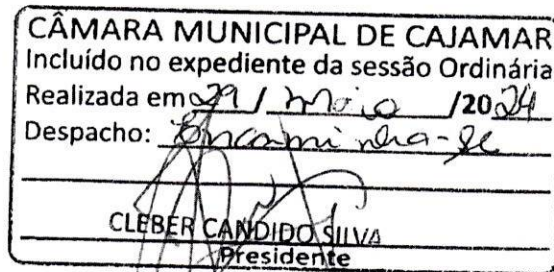 CÂMARA MUNICIPAL DE CAJAMAR
Incluído no expediente da sessão Ordinária
Realizada em 29 / Maio /2024
Despacho: Encaminha-se
CLEBER CANDIDO SILVA
Presidente